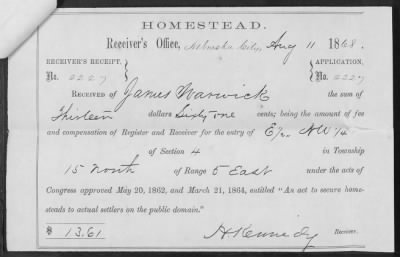 HOMESTEAD.
Receiver's Office, Nebraska City, Aug 11 1868.
RECEIVER'S RECEIPT, APPLICATION,
No. 2227 No. 2227
RECEIVED OF James Warwick the sum of
Thirteen dollars Sixty one cents; being the amount of fee
and compensation of Register and Receiver for the entry of E/2 NW 1/4
of Section 4 in Township
15 North of Range 5 East under the acts of
Congress approved May 20, 1862, and March 21, 1864, entitled "An act to secure home-
steads to actual settlers on the public domain."
$ 13.61 H Kennedy Receiver.